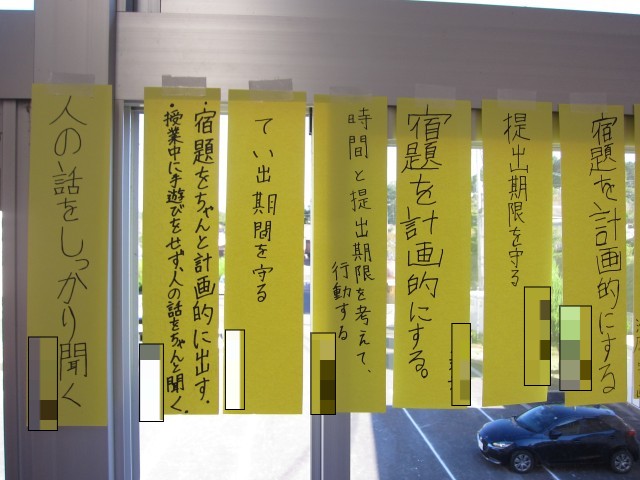 宿題を計画的にする
提出期限を守る
宿題を計画的にする。
時間と提出期限を考えて、
行動する
てい出期間を守る
・宿題をちゃんと計画的に出す.
・授業中に手遊びをせず、人の話をちゃんと聞く.
人の話をしっかり聞く